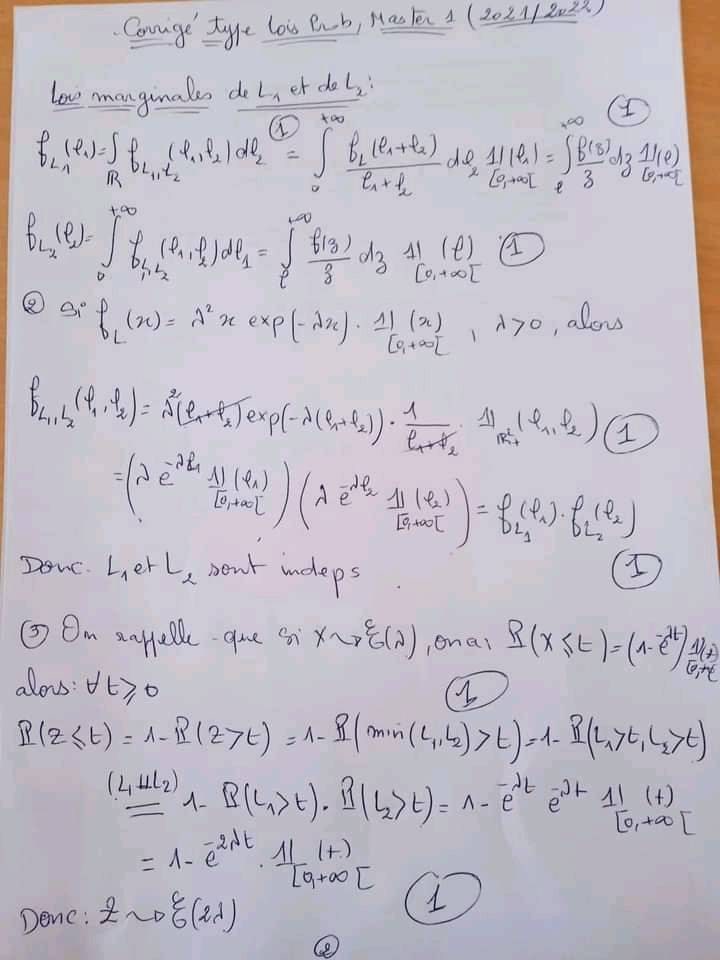 Corrigé type Lois Prob, Master 1 (2021/2022)
Lois marginales de L₁ et de L₂:
f_{L₁}(ℓ₁) = ∫_ℝ f_{L₁,L₂}(ℓ₁,ℓ₂)dℓ₂ ① = ∫₀^{+∞} f_L(ℓ₁+ℓ₂)/(ℓ₁+ℓ₂) dℓ₂ 1|_{[0,+∞[}(ℓ₁) = ∫_ℓ^{+∞} f(z)/z dz 1|_{[0,+∞[}(ℓ) ①
f_{L₂}(ℓ₂) = ∫₀^{+∞} f_{L₁,L₂}(ℓ₁,ℓ₂)dℓ₁ = ∫_ℓ^{+∞} f(z)/z dz 1|_{[0,+∞[}(ℓ) . ①
② Si f_L(x) = λ² x exp(-λx) . 1|_{[0,+∞[}(x) , λ>0, alors
f_{L₁,L₂}(ℓ₁,ℓ₂) = λ²(ℓ₁+ℓ₂) exp(-λ(ℓ₁+ℓ₂)) . 1/(ℓ₁+ℓ₂) 1|_{ℝ²₊}(ℓ₁,ℓ₂) ①
= (λ e^{-λℓ₁} 1|_{[0,+∞[}(ℓ₁)) (λ e^{-λℓ₂} 1|_{[0,+∞[}(ℓ₂)) = f_{L₁}(ℓ₁) . f_{L₂}(ℓ₂)
Donc. L₁ et L₂ sont indeps . ①
③ On rappelle que si X ⇝ ℰ(λ), on a: ℙ(X ≤ t) = (1-e^{-λt}) 1|_{[0,+∞[}(t)
alors: ∀ t ≥ 0 ①
ℙ(Z ≤ t) = 1-ℙ(Z > t) = 1-ℙ(min(L₁,L₂) > t) = 1-ℙ(L₁>t, L₂>t)
(L₁ ⫫ L₂) = 1-ℙ(L₁>t) . ℙ(L₂>t) = 1 - e^{-λt} e^{-λt} 1|_{[0,+∞[}(t)
= 1-e^{-2λt} . 1|_{[0,+∞[}(t)
Donc: Z ⇝ ℰ(2λ) ①
②